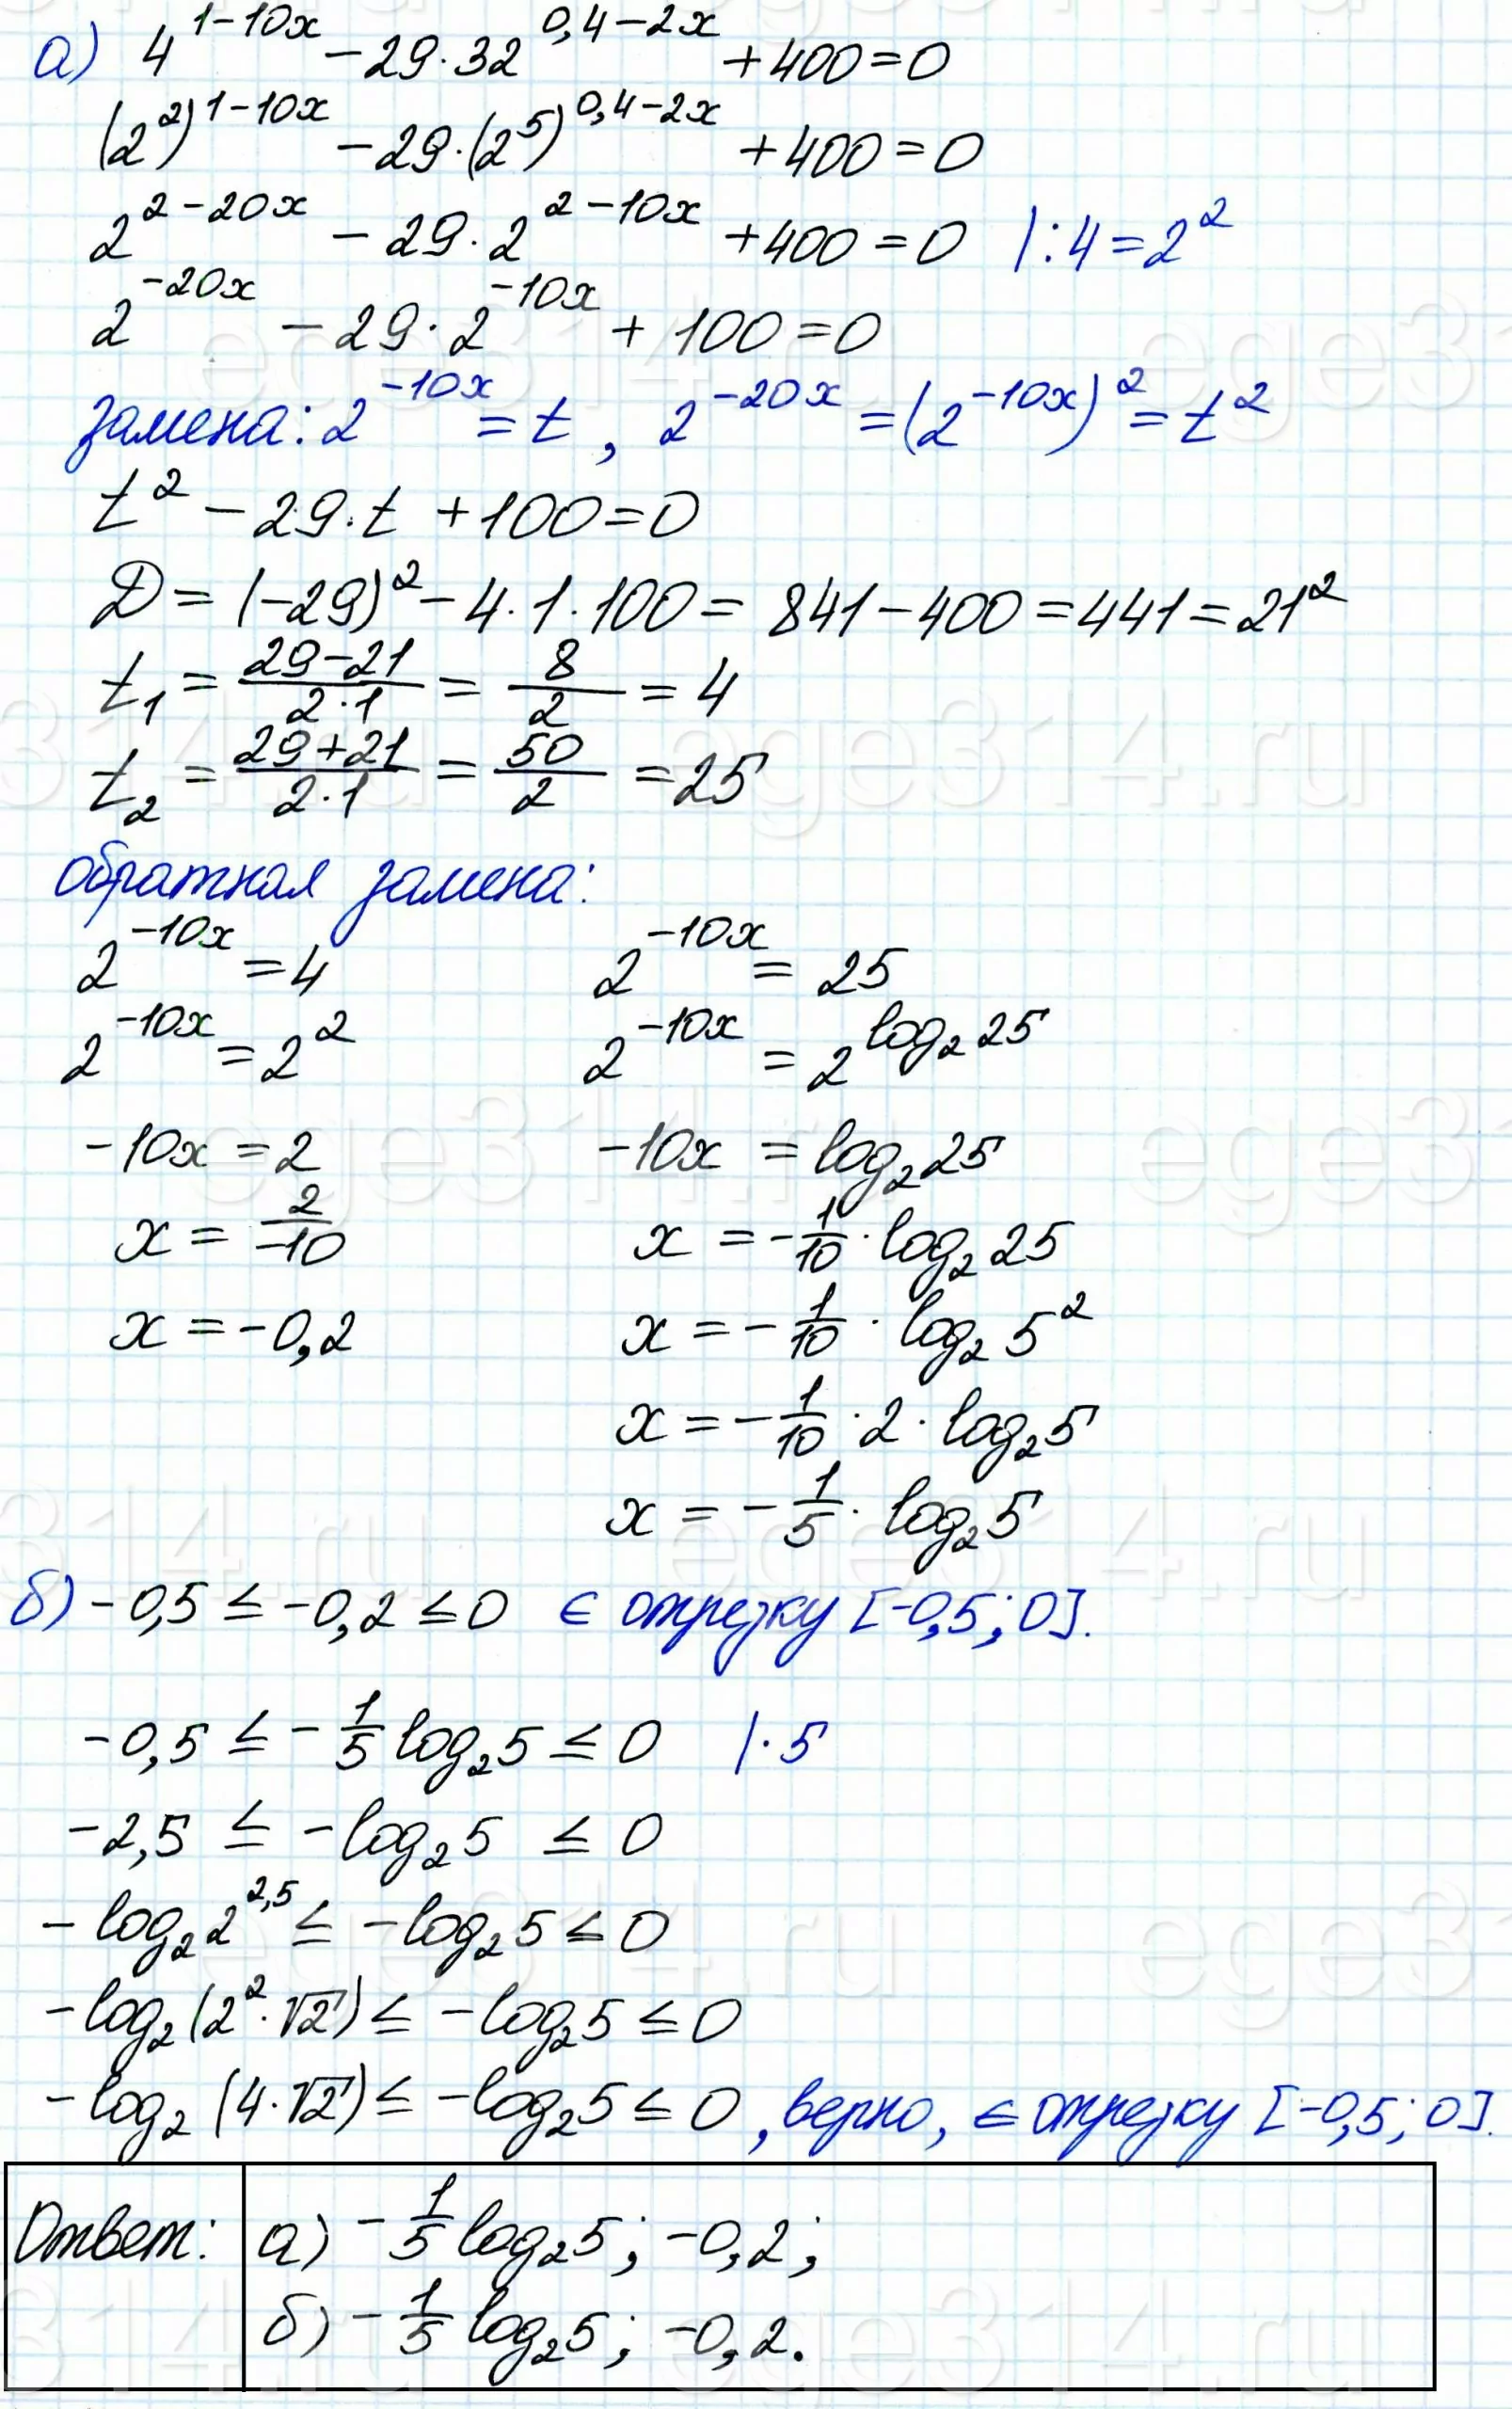 а) 4^(1-10x) - 29·32^(0,4-2x) + 400 = 0
(2²)^(1-10x) - 29·(2⁵)^(0,4-2x) + 400 = 0
2^(2-20x) - 29·2^(2-10x) + 400 = 0 |:4=2²
2^(-20x) - 29·2^(-10x) + 100 = 0
замена: 2^(-10x) = t, 2^(-20x) = (2^(-10x))² = t²
t² - 29·t + 100 = 0
D = (-29)² - 4·1·100 = 841 - 400 = 441 = 21²
t₁ = (29-21)/(2·1) = 8/2 = 4
t₂ = (29+21)/(2·1) = 50/2 = 25
обратная замена:
2^(-10x) = 4 2^(-10x) = 25
2^(-10x) = 2² 2^(-10x) = 2^(log₂25)
-10x = 2 -10x = log₂25
x = 2/-10 x = -1/10·log₂25
x = -0,2 x = -1/10·log₂5²
x = -1/10·2·log₂5
x = -1/5·log₂5
б) -0,5 ≤ -0,2 ≤ 0 ∈ отрезку [-0,5; 0].
-0,5 ≤ -1/5 log₂5 ≤ 0 |·5
-2,5 ≤ -log₂5 ≤ 0
-log₂2^(2,5) ≤ -log₂5 ≤ 0
-log₂(2²·√2) ≤ -log₂5 ≤ 0
-log₂(4·√2) ≤ -log₂5 ≤ 0, верно, ∈ отрезку [-0,5; 0].
Ответ: а) -1/5 log₂5; -0,2;
б) -1/5 log₂5; -0,2.
ege314.ru